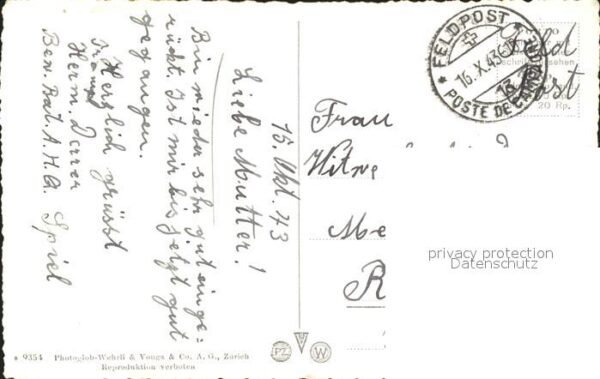 15. Okt. 43
Liebe Mutter!
Bin wieder sehr gut einge=
rückt. Ist mir bis jetzt gut
gegangen.
Herzlich grüsst
Herm.
Bew. Bat. A.H.Q. Spiel
Frau
Witwe
Me
R
Feld
Post
FELDPOST
16.X.43
POSTE DE CAMPAGNE
20 Rp.
privacy protection
Datenschutz
9354 Photoglob-Wehrli & Vouga & Co. A. G., Zürich
Reproduktion verboten
PZ
W